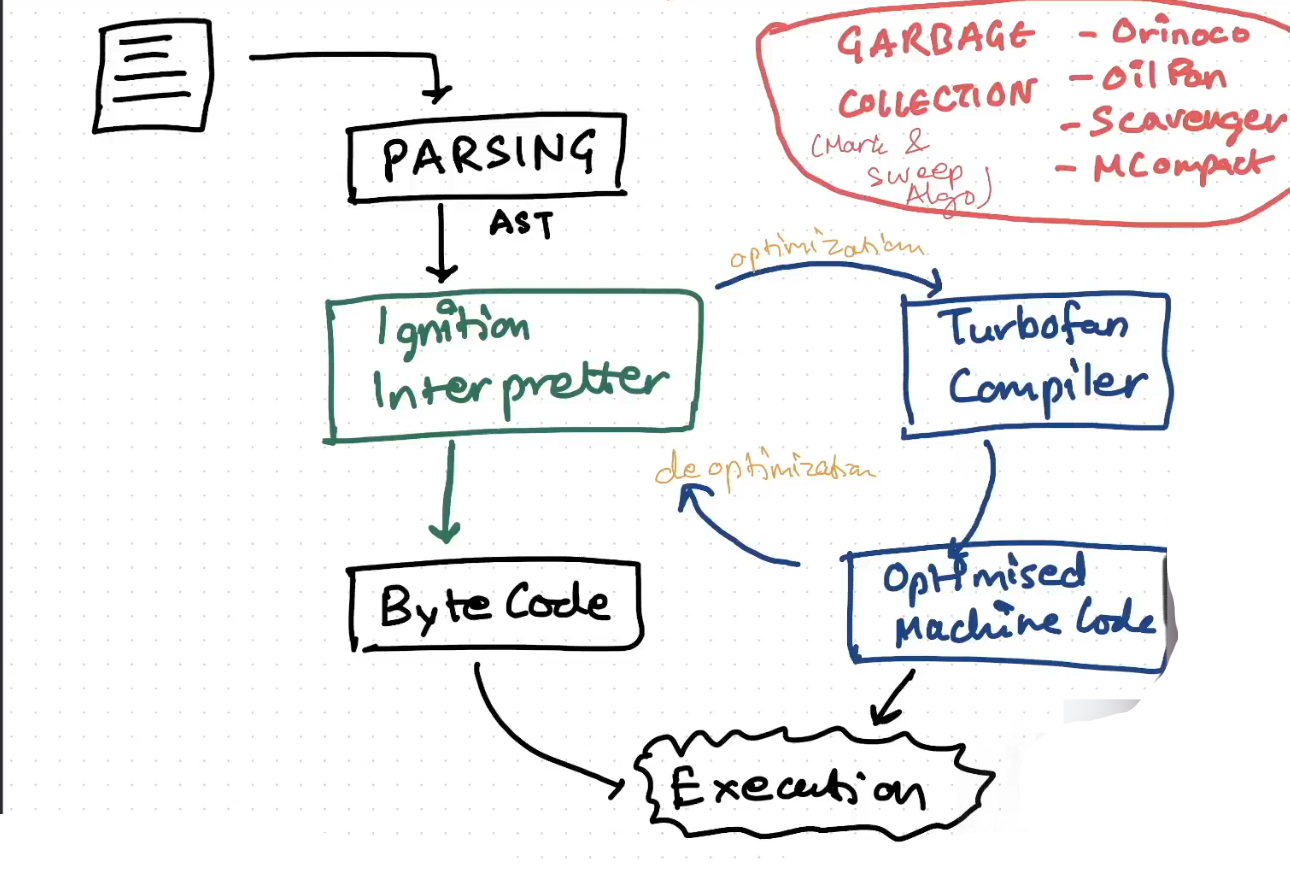 GARBAGE
COLLECTION
(Mark &
Sweep
Algo)
- Orinoco
- Oil Pan
- Scavenger
- MCompact
PARSING
AST
optimization
Ignition
Interpretter
Turbofan
Compiler
deoptimization
Byte Code
Optimised
Machine Code
Execution